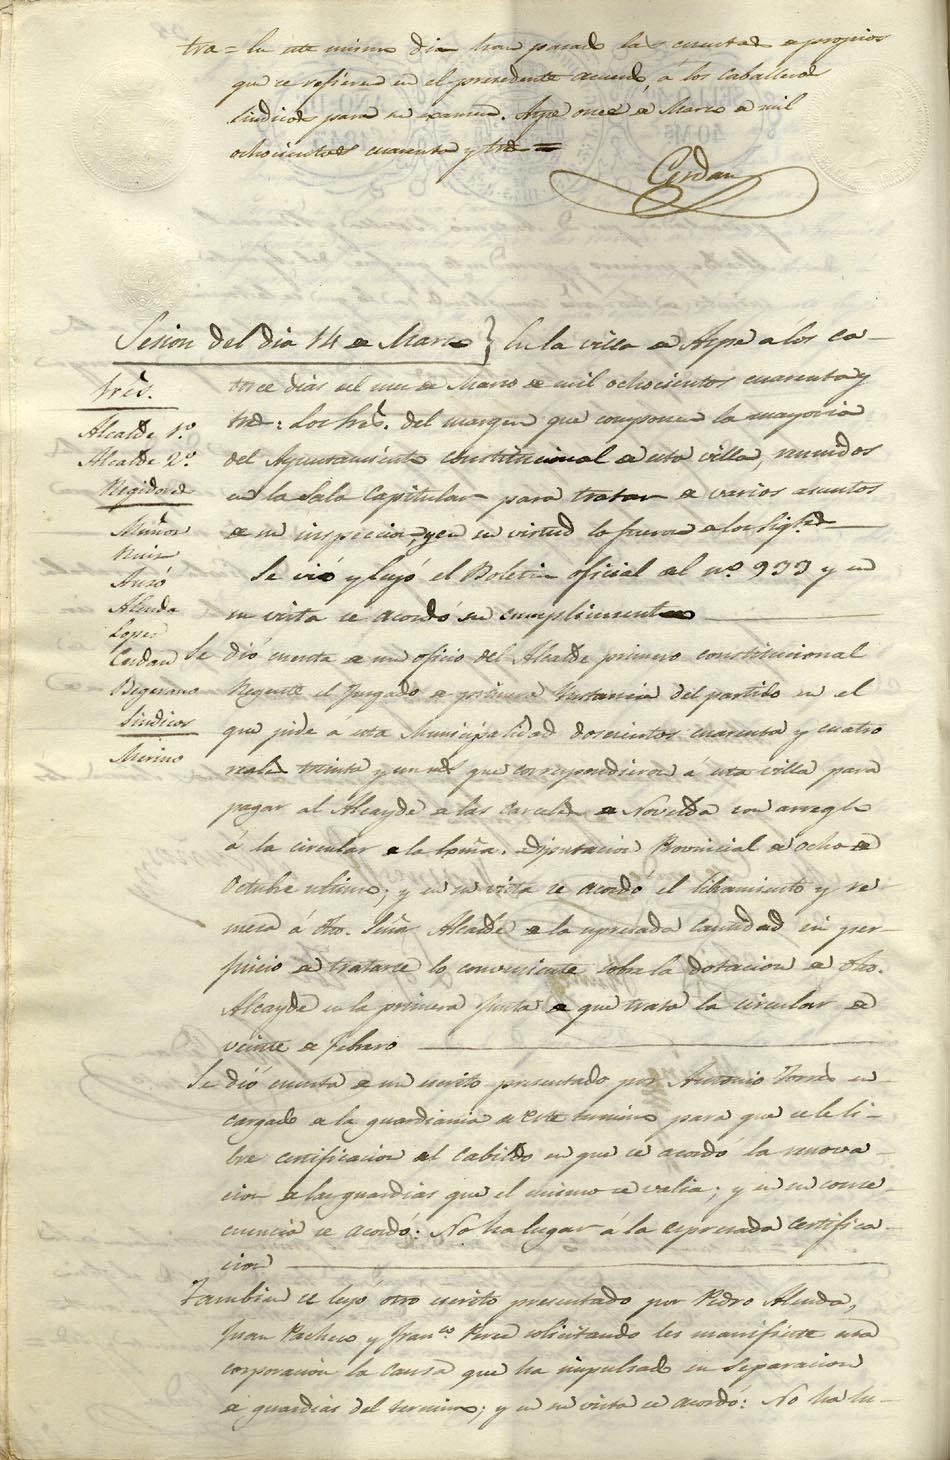 tra = En este mismo dia han pasado las cuentas de propios
que se refieren en el precedente acuerdo á los Caballeros
Sindicos para su examen. Aspe once de Marzo de mil
ochocientos cuarenta y tres =
Cerdan
Sesion del dia 14 de Marzo } En la villa de Aspe a los ca-
Sres.
Alcalde 1º.
Alcalde 2º.
Regidores
Muñoz
Ruiz
Alenda
Lopez
Cerdan
Begerano
Sindicos
Merino
torce dias del mes de Marzo de mil ochocientos cuarenta y
tres: Los Sres. del margen que componen la mayoria
del Ayuntamiento constitucional de esta villa, reunidos
en la Sala Capitular para tratar de varios asuntos
de su inspeccion, y en su virtud lo fueron de los sigtes.
Se vió y leyó el Boletin oficial del nº 933 y en
su vista se acordó su cumplimiento
Se dió cuenta de un oficio del Alcalde primero constitucional
Regente el Juzgado de primera Instancia del partido en el
que pide á esta Municipalidad doscientos cuarenta y cuatro
reales treinta y un mrs que correspondieron á esta villa para
pagar al Alcayde de las carceles de Novelda con arreglo
á la circular de la Exma. Diputacion Provincial de ocho de
Octubre ultimo; y en su vista se acordó el libramiento y re-
mesa á dho. Señor Alcalde de la espresada cantidad sin per-
juicio de tratarse lo conveniente sobre la dotacion de dho.
Alcayde en la primera Junta de que trata la circular de
veinte de febrero
Se dió cuenta de un escrito presentado por Antonio Torres en-
cargado de la guardiania de este termino para que se le li-
bre certificacion del Cabildo en que se acordó la renova-
cion de las guardias que el mismo se valia; y en su conse-
cuencia se acordó: No ha lugar á la espresada certifica-
cion
Tambien se leyó otro escrito presentado por Pedro Alenda,
Juan Pacheco y Franco Perez solicitando les manifieste esta
corporacion la causa que ha impulsado su separacion
de guardias del termino; y en su vista se acordó: No ha lu-